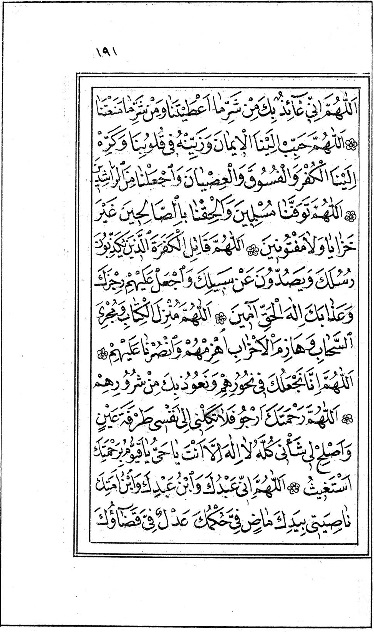 ١٩١
اَللّٰهُمَّ اِنِّيْ عَآئِذٌ بِكَ مِنْ شَرِّ مَا اَعْطَيْتَنَا وَمِنْ شَرِّ مَا مَنَعْتَنَا
اَللّٰهُمَّ حَبِّبْ اِلَيْنَا الْاِيْمَانَ وَزَيِّنْهُ فِيْ قُلُوْبِنَا وَكَرِّهْ
اِلَيْنَا الْكُفْرَ وَالْفُسُوْقَ وَالْعِصْيَانَ وَاجْعَلْنَا مِنَ الرَّاشِدِيْنَ
اَللّٰهُمَّ تَوَفَّنَا مُسْلِمِيْنَ وَاَلْحِقْنَا بِالصَّالِحِيْنَ غَيْرَ
خَزَايَا وَلَا مَفْتُوْنِيْنَ اَللّٰهُمَّ قَاتِلِ الْكَفَرَةَ الَّذِيْنَ يُكَذِّبُوْنَ
رُسُلَكَ وَيَصُدُّوْنَ عَنْ سَبِيْلِكَ وَاجْعَلْ عَلَيْهِمْ رِجْزَكَ
وَعَذَابَكَ اِلٰهَ الْحَقِّ آمِيْنَ اَللّٰهُمَّ مُنْزِلَ الْكِتَابِ وَمُجْرِيَ
السَّحَابِ وَهَازِمَ الْاَحْزَابِ اهْزِمْهُمْ وَانْصُرْنَا عَلَيْهِمْ
اَللّٰهُمَّ اِنَّا نَجْعَلُكَ فِيْ نُحُوْرِهِمْ وَنَعُوْذُ بِكَ مِنْ شُرُوْرِهِمْ
اَللّٰهُمَّ رَحْمَتَكَ اَرْجُوْ فَلَا تَكِلْنِيْ اِلٰى نَفْسِيْ طَرْفَةَ عَيْنٍ
وَاَصْلِحْ لِيْ شَأْنِيْ كُلَّهُ لَا اِلٰهَ اِلَّا اَنْتَ يَا حَيُّ يَا قَيُّوْمُ بِرَحْمَتِكَ
اَسْتَغِيْثُ اَللّٰهُمَّ اِنِّيْ عَبْدُكَ وَابْنُ عَبْدِكَ وَابْنُ اَمَتِكَ
نَاصِيَتِيْ بِيَدِكَ مَاضٍ فِيَّ حُكْمُكَ عَدْلٌ فِيَّ قَضَاؤُكَ